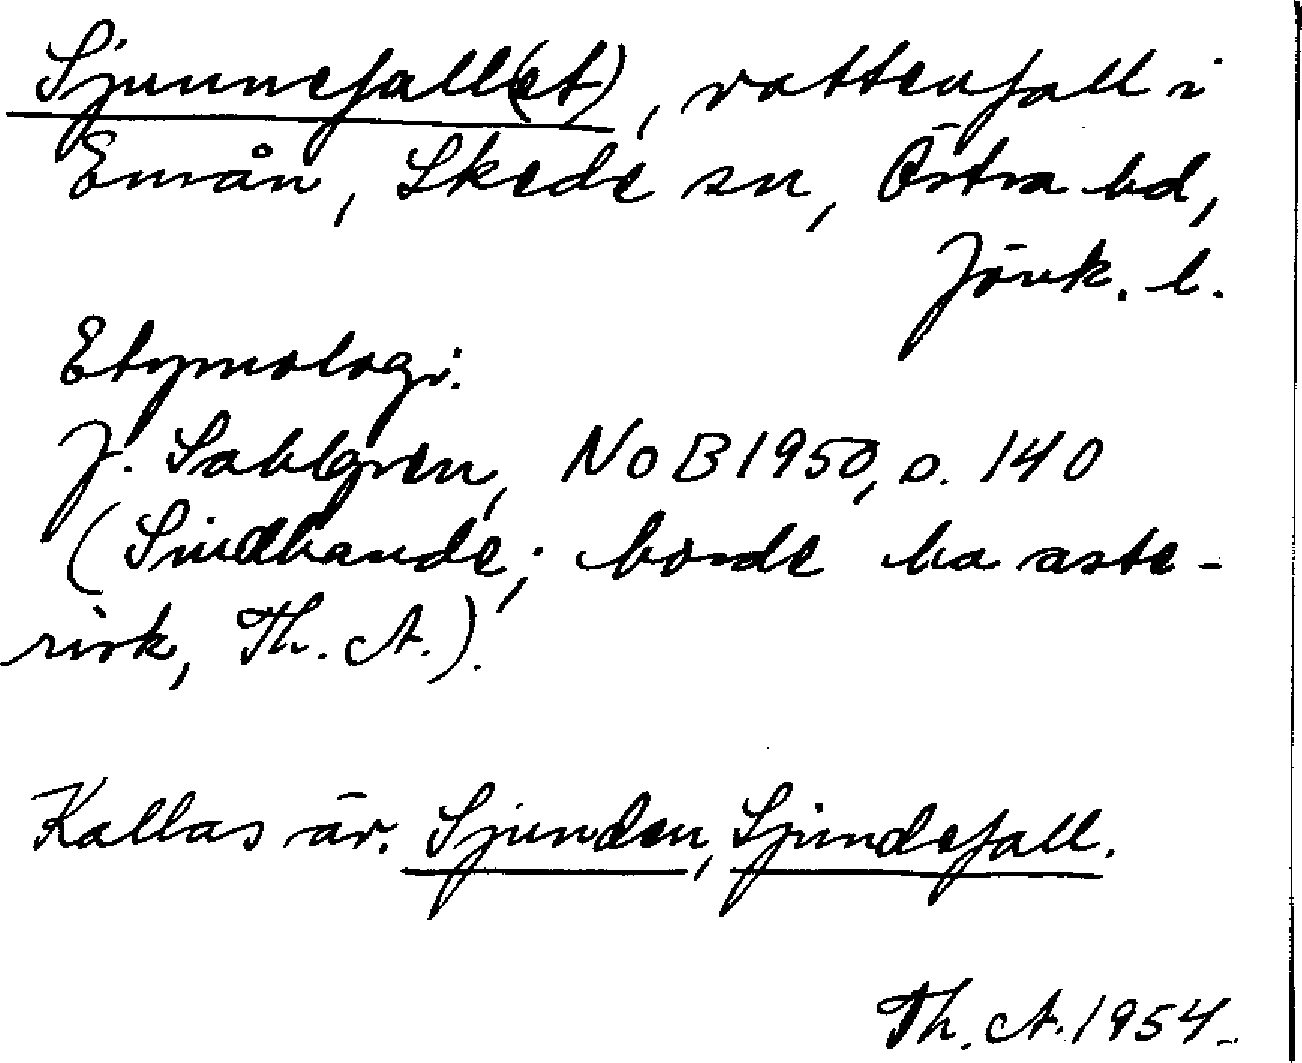 Sjunnefall(et), vattenfall i
Emån, Skede sn, Östra hd,
Jönk. l.
Etymologi:
J. Sahlgren, NoB 1950, s. 140
(Siudhande; borde ha aste-
risk, Th. A.).
Kallas äv. Sjunden, Sjundefall.
Th. A. 1954.